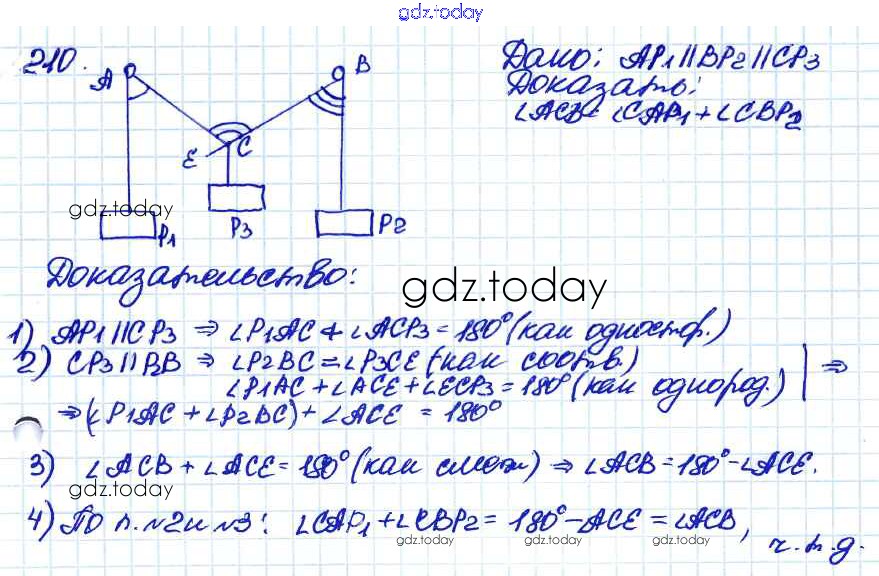 gdz.today
210.
A B
E C
gdz.today
P1 P3 P2
Дано: AP1 || BP2 || CP3
Доказать:
∠ACB = ∠CAP1 + ∠CBP2
Доказательство:
gdz.today
1) AP1 || CP3 ⇒ ∠P1AC + ∠ACP3 = 180° (как одностор.)
2) CP3 || P2B ⇒ ∠P2BC = ∠P3CE (как соотв.)
∠P1AC + ∠ACE + ∠ECP3 = 180° (как однород.) | ⇒
⇒ (∠P1AC + ∠P2BC) + ∠ACE = 180°
3) ∠ACB + ∠ACE = 180° (как смеж) ⇒ ∠ACB = 180° - ∠ACE.
gdz.today
4) По п. №2 и №3: ∠CAP1 + ∠CBP2 = 180° - ACE = ∠ACB,
gdz.today gdz.today
ч.т.д.
gdz.today